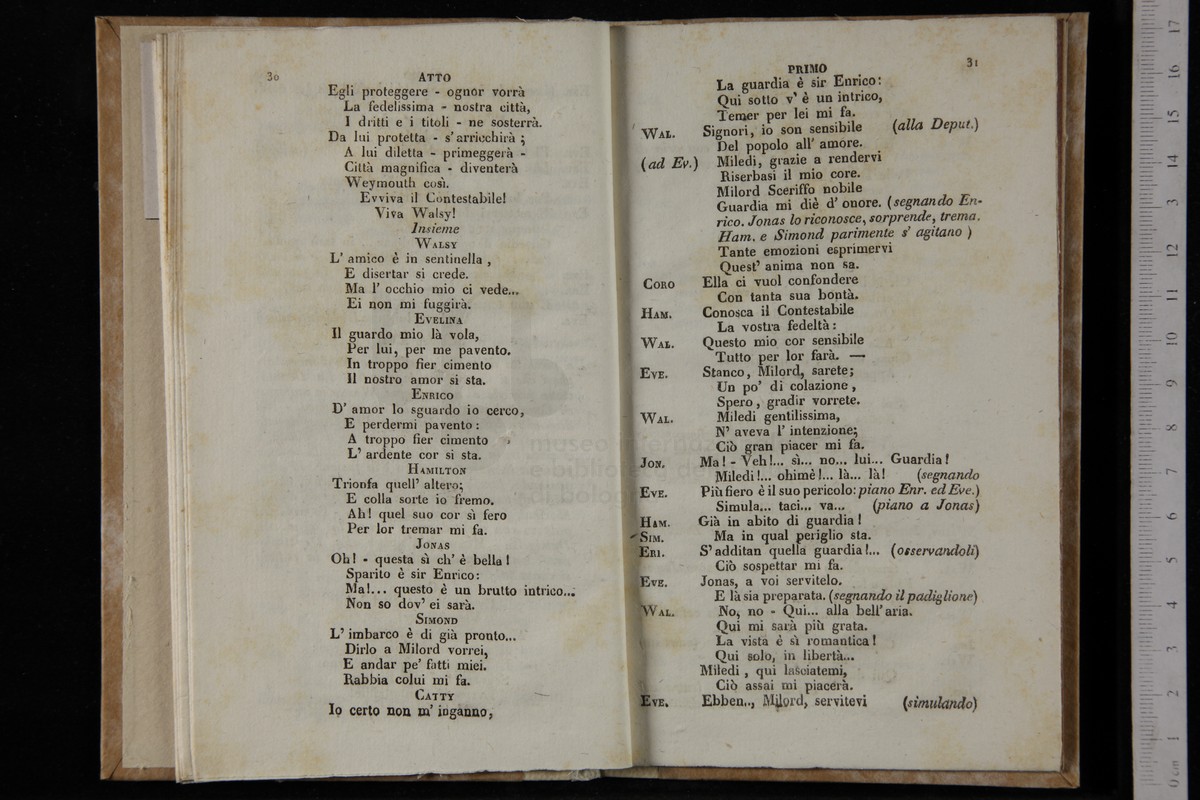 30
ATTO
Egli proteggere - ognor vorrà
La fedelissima - nostra città,
I dritti e i titoli - ne sosterrà.
Da lui protetta - s' arricchirà ;
A lui diletta - primeggerà -
Città magnifica - diventerà
Weymouth così.
Evviva il Contestabile!
Viva Walsy!
Insieme
WALSY
L' amico è in sentinella ,
E disertar si crede.
Ma l' occhio mio ci vede...
Ei non mi fuggirà.
EVELINA
Il guardo mio là vola,
Per lui, per me pavento.
In troppo fier cimento
Il nostro amor si sta.
ENRICO
D' amor lo sguardo io cerco,
E perdermi pavento :
A troppo fier cimento
L' ardente cor si sta.
HAMILTON
Trionfa quell' altero;
E colla sorte io fremo.
Ah! quel suo cor sì fero
Per lor tremar mi fa.
JONAS
Oh! - questa sì ch' è bella !
Sparito è sir Enrico:
Ma!... questo è un brutto intrico...
Non so dov' ei sarà.
SIMOND
L' imbarco è di già pronto...
Dirlo a Milord vorrei,
E andar pe' fatti miei.
Rabbia colui mi fa.
CATTY
Io certo non m' inganno,
PRIMO
31
La guardia è sir Enrico:
Qui sotto v' è un intrico,
Temer per lei mi fa.
WAL. Signori, io son sensibile (alla Deput.)
Del popolo all' amore.
(ad Ev.) Miledi, grazie a rendervi
Riserbasi il mio core.
Milord Sceriffo nobile
Guardia mi diè d' onore. (segnando En-
rico. Jonas lo riconosce, sorprende, trema.
Ham. e Simond parimente s' agitano )
Tante emozioni esprimervi
Quest' anima non sa.
CORO Ella ci vuol confondere
Con tanta sua bontà.
HAM. Conosca il Contestabile
La vostra fedeltà :
WAL. Questo mio cor sensibile
Tutto per lor farà. —
EVE. Stanco, Milord, sarete;
Un po' di colazione ,
Spero , gradir vorrete.
WAL. Miledi gentilissima,
N' aveva l' intenzione;
Ciò gran piacer mi fa.
JON. Ma! - Veh!... sì... no... lui... Guardia!
Miledi!... ohimè!... là... là! (segnando
EVE. Più fiero è il suo pericolo: piano Enr. ed Eve.)
Simula... taci... va... (piano a Jonas)
HAM. Già in abito di guardia !
SIM. Ma in qual periglio sta.
ERI. S' additan quella guardia!... (osservandoli)
Ciò sospettar mi fa.
EVE. Jonas, a voi servitelo.
E là sia preparata. (segnando il padiglione)
WAL. No, no - Qui... alla bell' aria.
Qui mi sarà più grata.
La vista è sì romantica !
Qui solo, in libertà...
Miledi , qui lasciatemi,
Ciò assai mi piacerà.
EVE. Ebben.., Milord, servitevi (simulando)